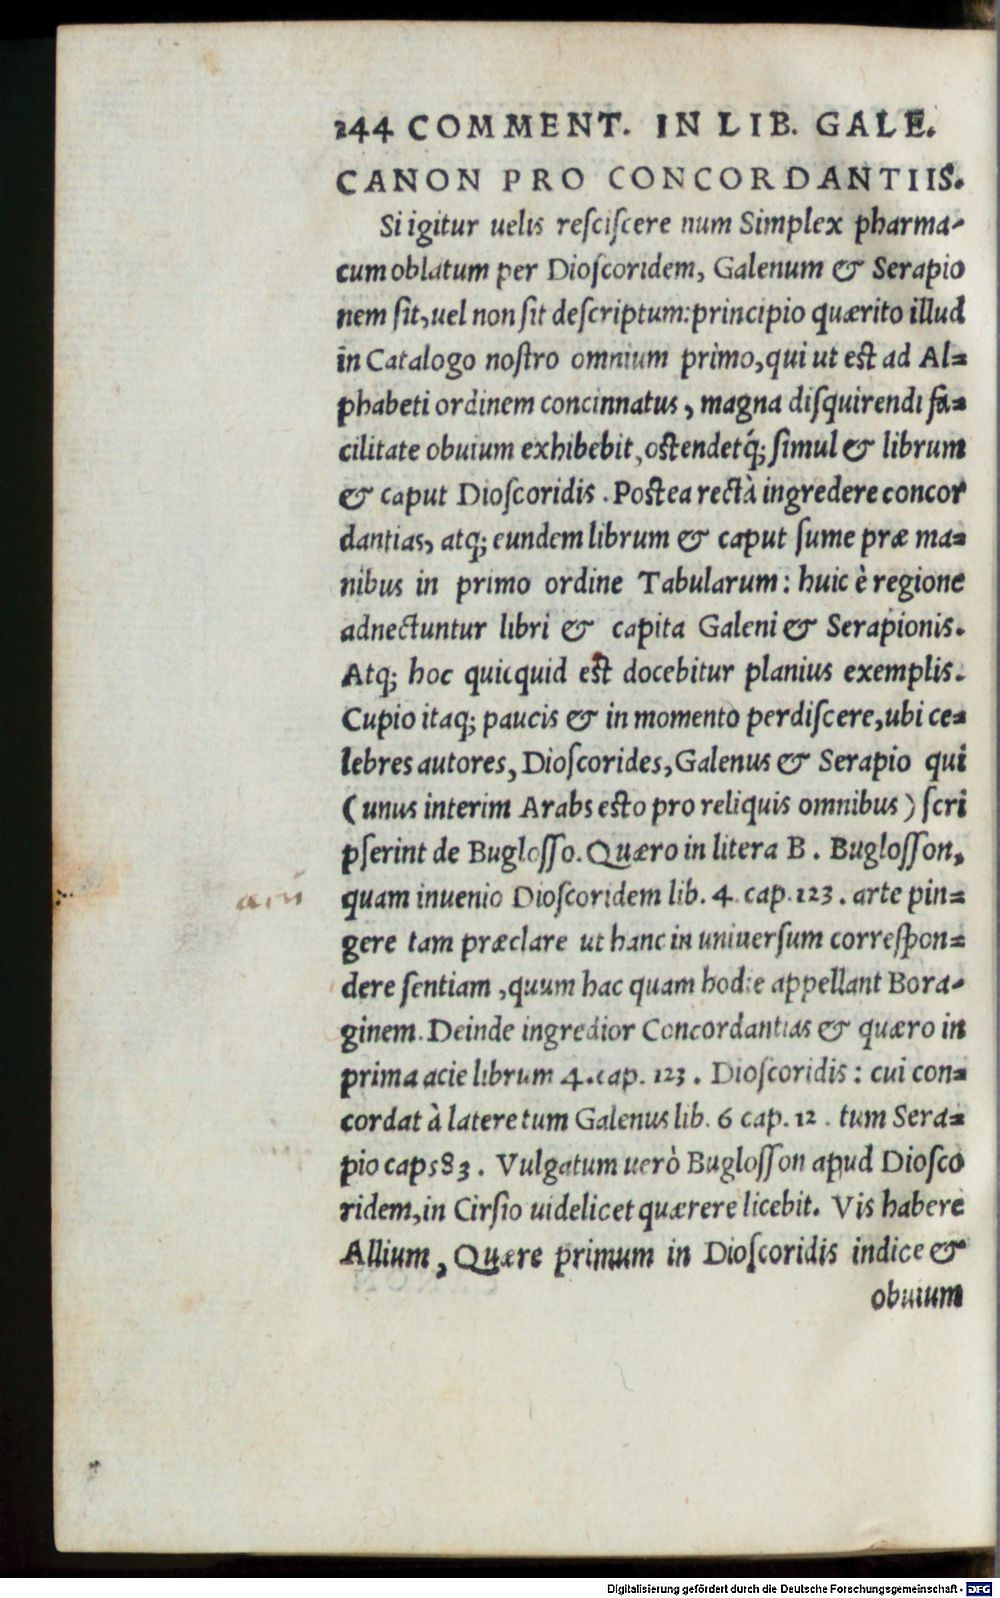 244 COMMENT. IN LIB. GALE.
CANON PRO CONCORDANTIIS.
Si igitur uelis resciscere num Simplex pharma-
cum oblatum per Dioscoridem, Galenum & Serapio
nem sit, uel non sit descriptum: principio quærito illud
in Catalogo nostro omnium primo, qui ut est ad Al=
phabeti ordinem concinnatus, magna disquirendi fa=
cilitate obuium exhibebit, ostendetq́; simul & librum
& caput Dioscoridis. Postea rectà ingredere concor
dantias, atq; eundem librum & caput sume præ ma=
nibus in primo ordine Tabularum: huic è regione
adnectuntur libri & capita Galeni & Serapionis.
Atq; hoc quicquid est docebitur planius exemplis.
Cupio itaq; paucis & in momento perdiscere, ubi ce=
lebres autores, Dioscorides, Galenus & Serapio qui
(unus interim Arabs esto pro reliquis omnibus) scri
pserint de Buglosso. Quæro in litera B. Buglosson,
quam inuenio Dioscoridem lib. 4. cap. 123. arte pin=
gere tam præclare ut hanc in uniuersum correspon=
dere sentiam, quum hac quam hodie appellant Bora-
ginem. Deinde ingredior Concordantias & quæro in
prima acie librum 4. cap. 123. Dioscoridis: cui con=
cordat à latere tum Galenus lib. 6 cap. 12. tum Sera=
pio cap 83. Vulgatum uerò Buglosson apud Diosco
ridem, in Cirsio uidelicet quærere licebit. Vis habere
Allium, Quære primum in Dioscoridis indice &
obuium
Digitalisierung gefördert durch die Deutsche Forschungsgemeinschaft - DFG